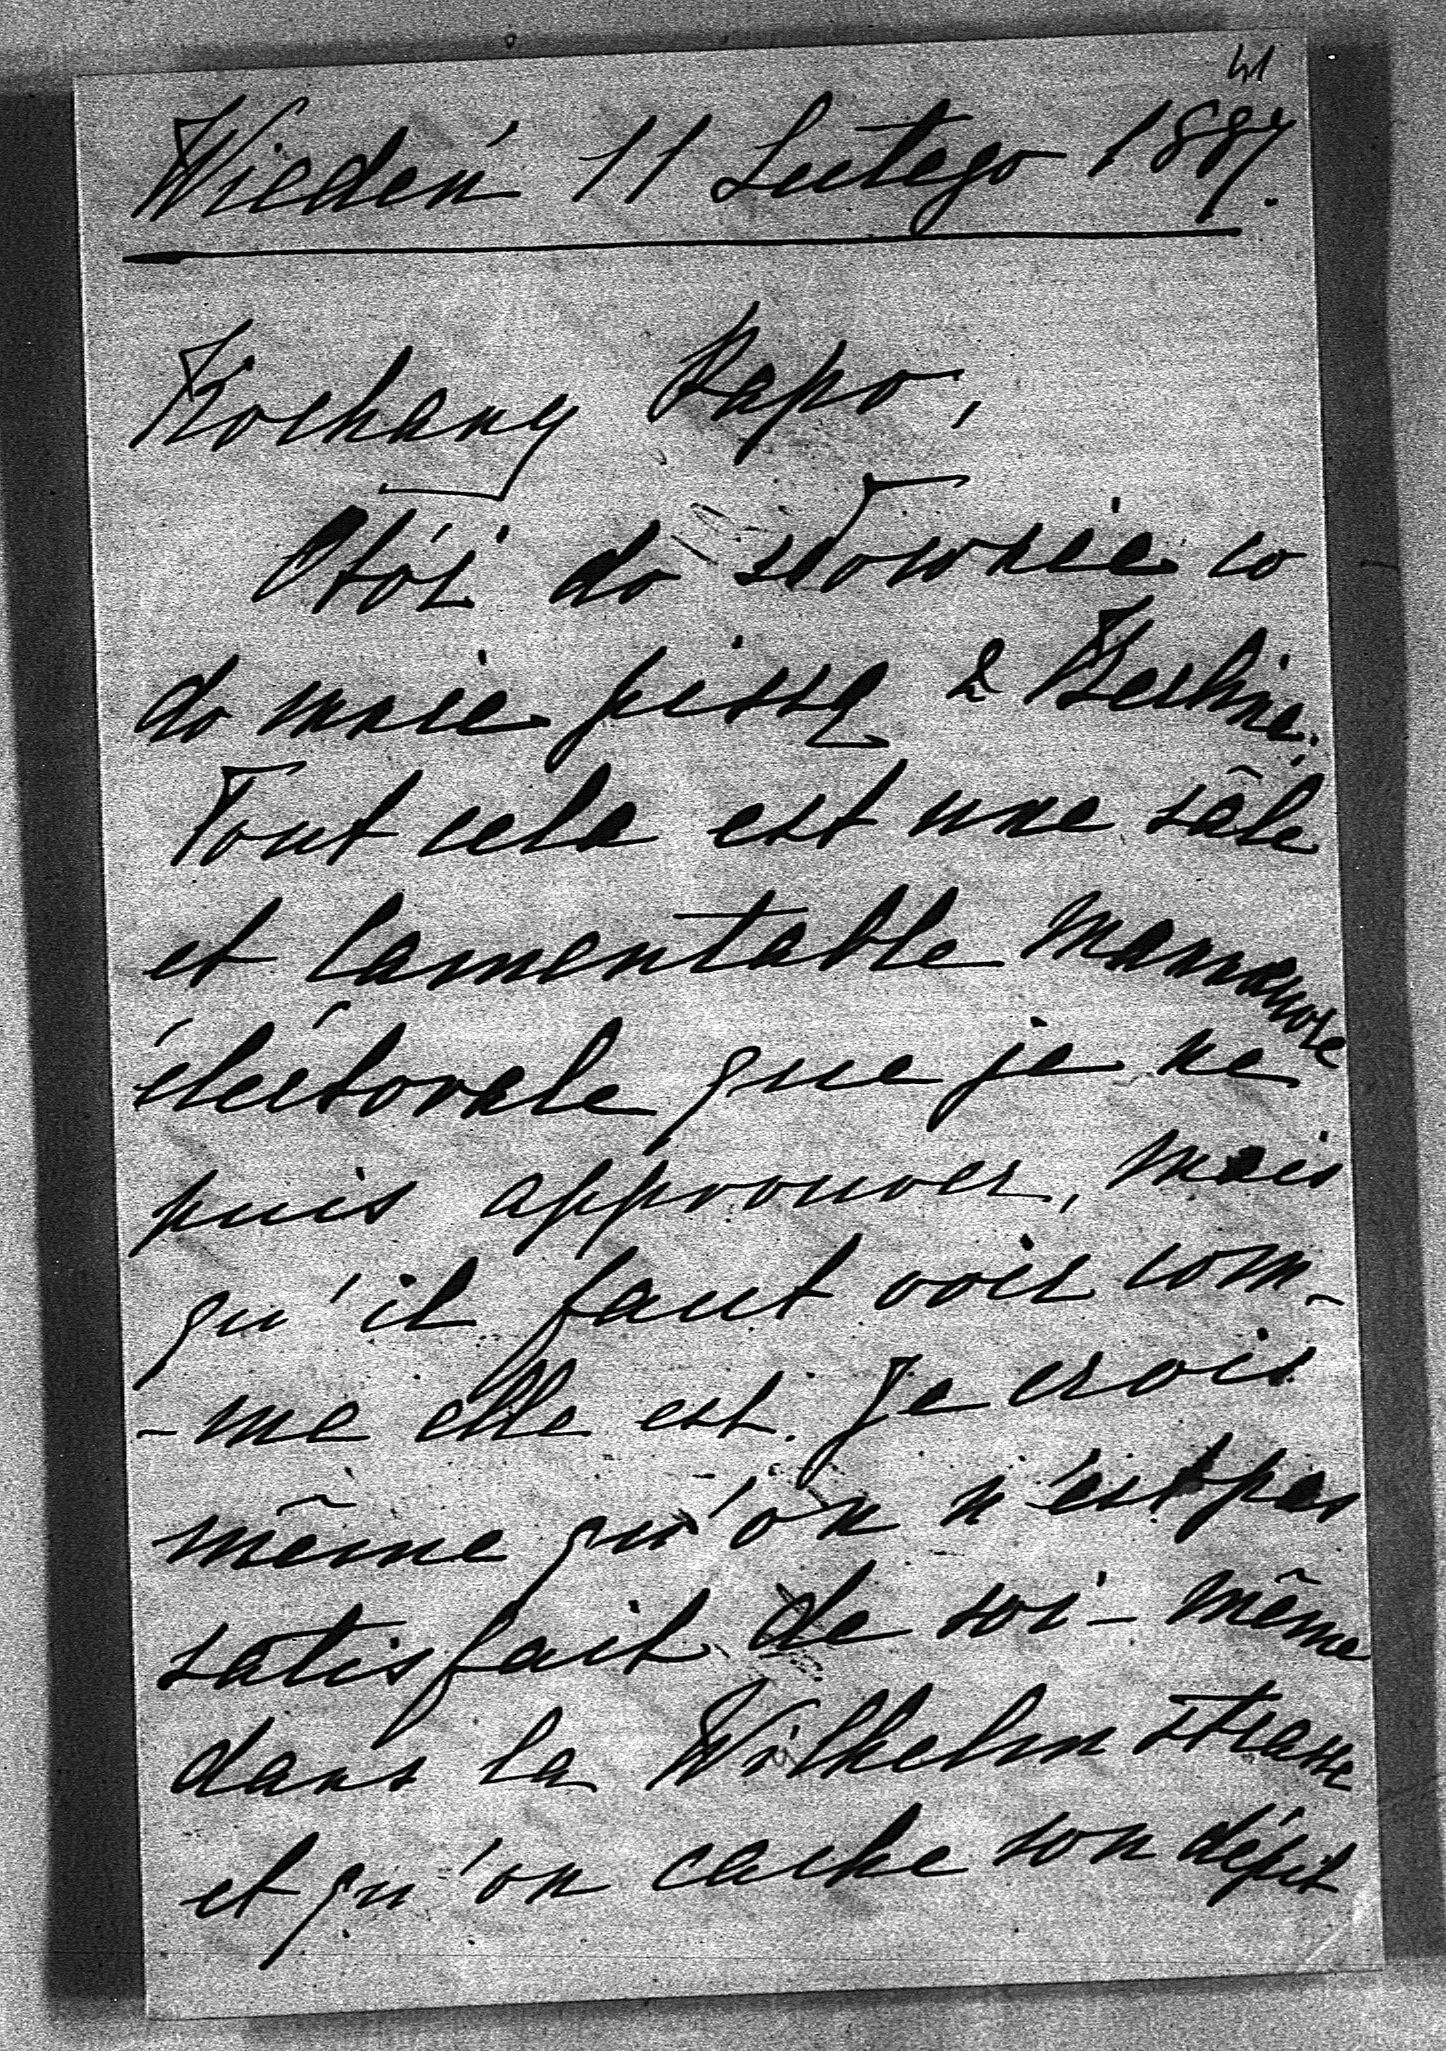 41
Wiedeń 11 Lutego 1887.
Kochany Papo,
Otóż do słownie co
do mnie piszą z Berlina:
Tout cela est une sâle
et lamentable manœuvre
électorale que je ne
puis approuver, mais
qu'il faut voir com-
-me elle est. Je crois
même qu'on n'est pas
satisfait de soi-même
dans la Wilhelm strasse
et qu'on cache son dépit